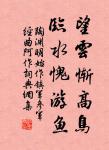 望雲慚高鳥
臨水愧游魚
陶淵明始作鎮軍參軍
經曲阿作詞典網集